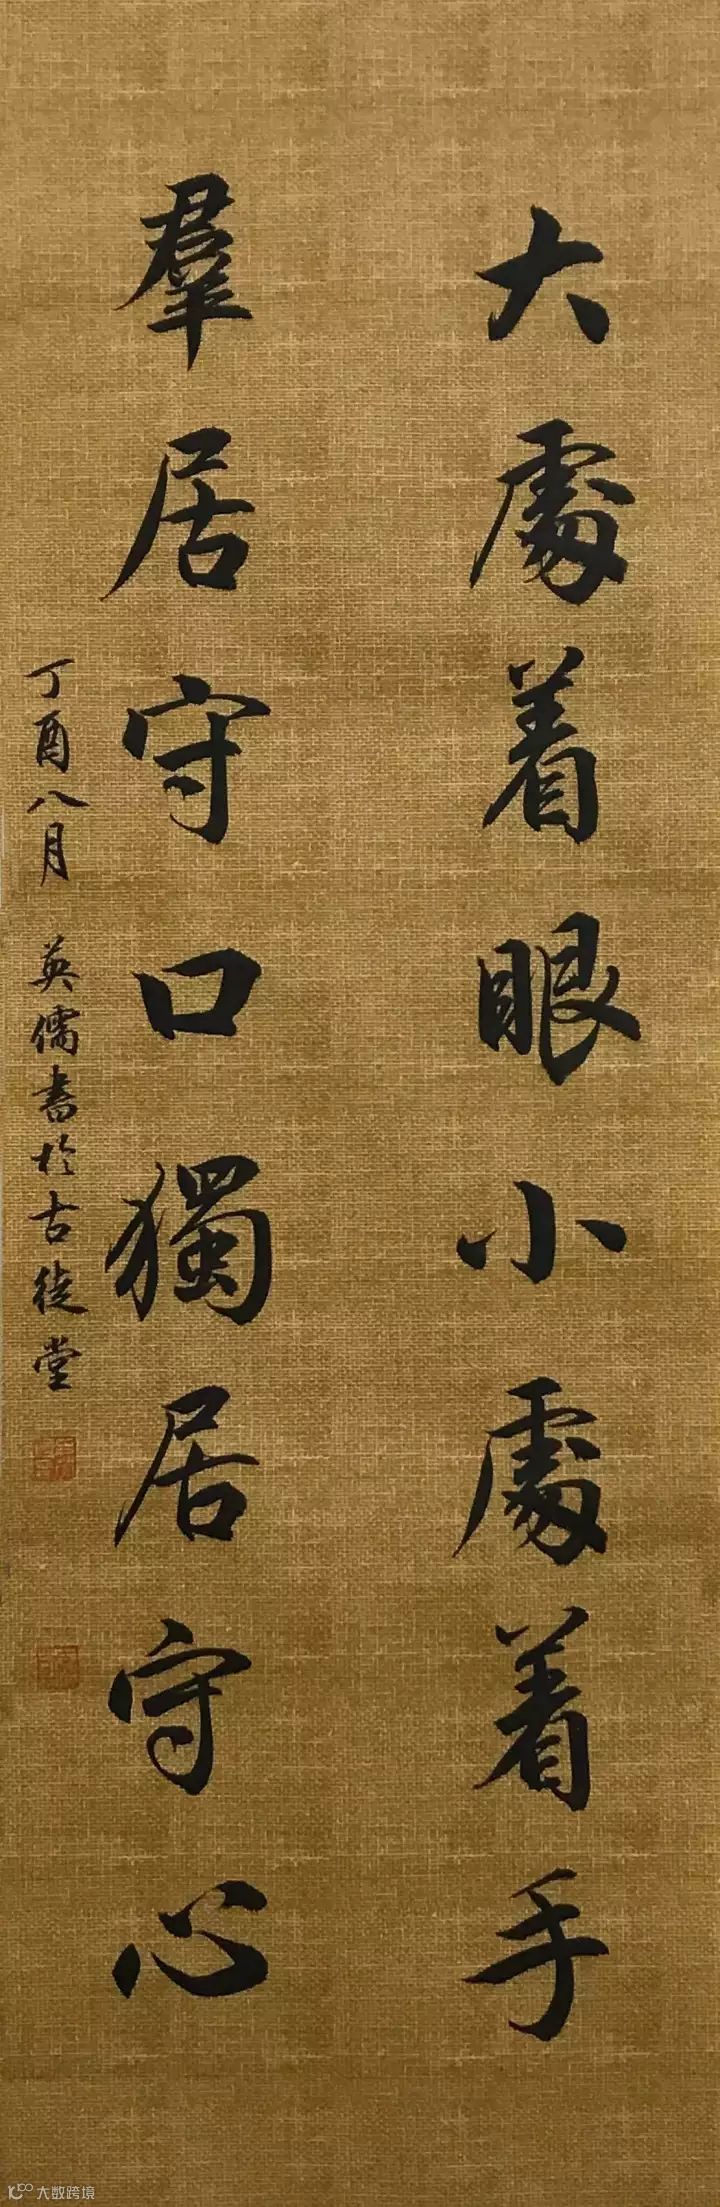 大處着眼小處着手
羣居守口獨居守心
丁酉八月 英儒書於古徒堂
大数跨境